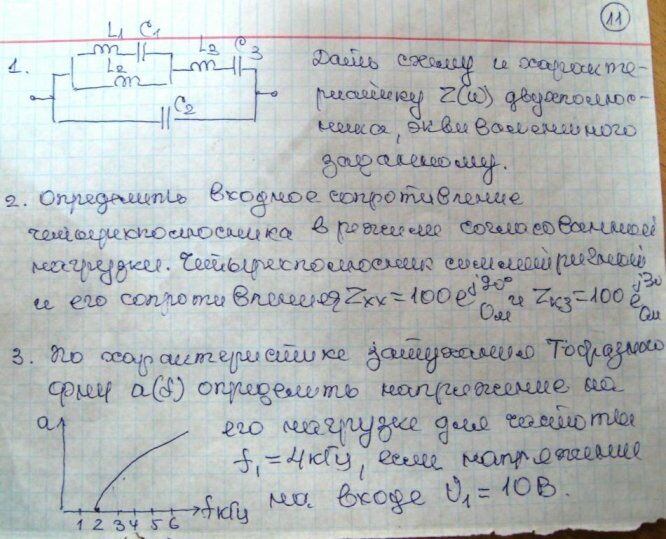 11
1.
L₁ C₁ L₂ C₃
L₂
C₂
Дать схему и характе-
ристику Z(ω) двухполюс-
ника, эквивалентного
заданному.
2. Определить входное сопротивление
четырехполюсника в режиме согласованной
нагрузки. Четырехполюсник симметричный
и его сопротивления Zхх = 100 e^j70° Ом и Zкз = 100 e^j30 Ом
3. По характеристике затухания Тобразного
ФНЧ a(f) определить напряжение на
его нагрузке для частоты
f₁ = 4кГц, если напряжение
на входе U₁ = 10В.
a
1 2 3 4 5 6 f кГц